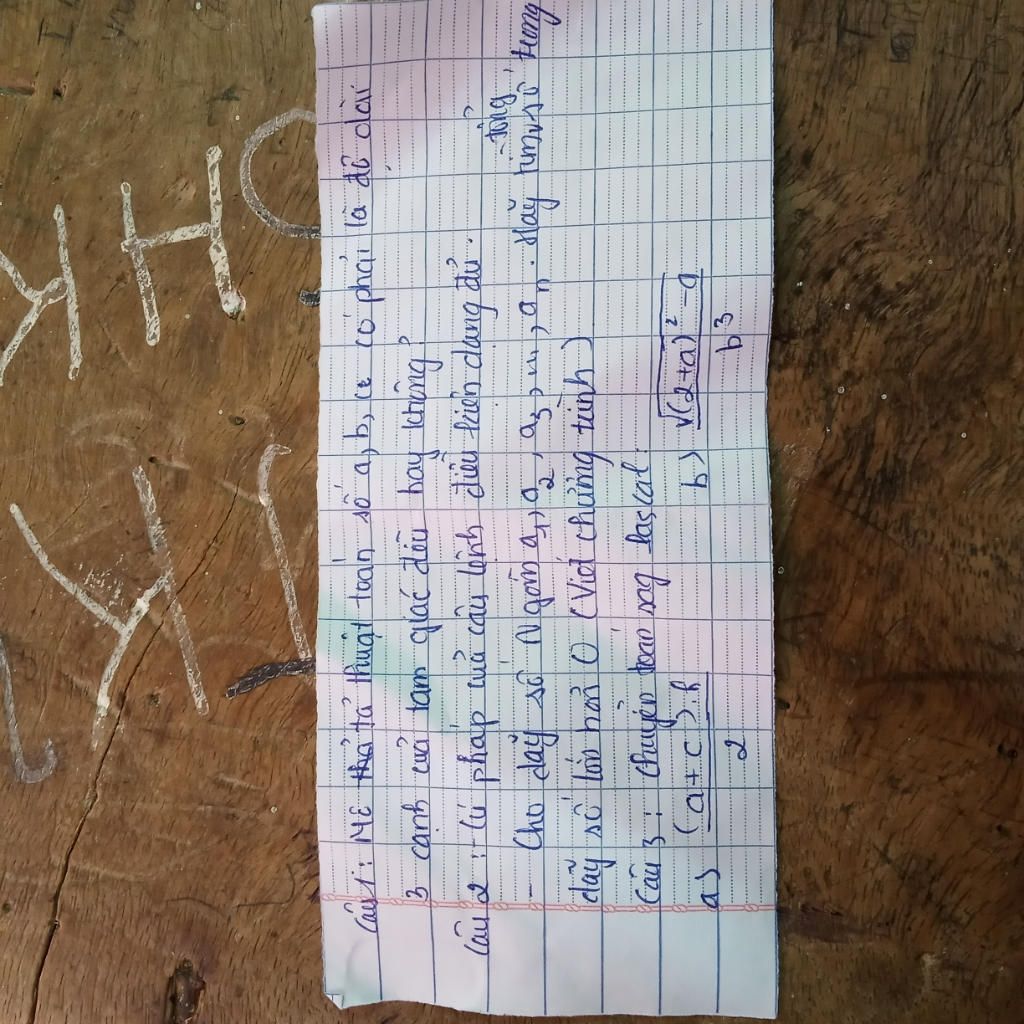 Câu 1: Mô tả thuật toán số a, b, c có phải là độ dài
3 cạnh của tam giác đều hay không?
Câu 2: - Cú pháp của câu lệnh điều kiện dạng đủ.
- Cho dãy số N gồm a1, a2, a3, ..., an. Hãy tìm tổng số trong
dãy số lớn hơn 0 (Viết chương trình)
Câu 3: chuyển toán sang Pascal:
a) (a+c).h / 2 b) √((2+a)² - 9) / b³